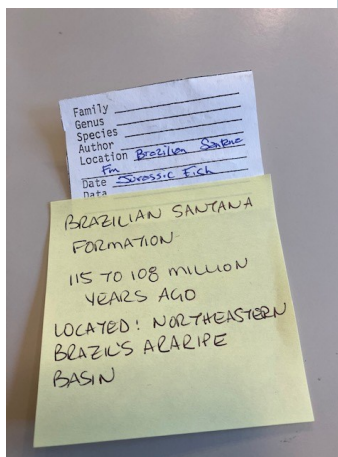 Family
Genus
Species
Author
Location Brazilian Santana
Fm
Date Jurassic Fish
Data
BRAZILIAN SANTANA
FORMATION
115 TO 108 MILLION
YEARS AGO
LOCATED: NORTHEASTERN
BRAZIL'S ARARIPE
BASIN